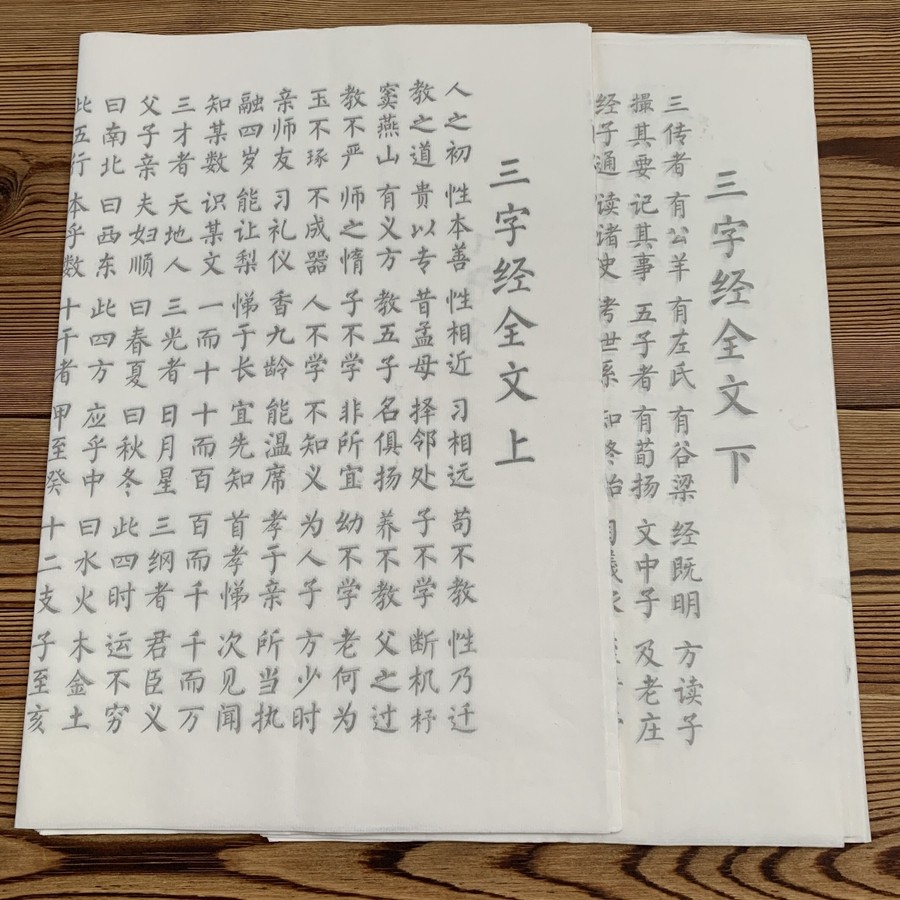 三字经全文 上
人之初 性本善 性相近 习相远 苟不教 性乃迁
教之道 贵以专 昔孟母 择邻处 子不学 断机杼
窦燕山 有义方 教五子 名俱扬 养不教 父之过
教不严 师之惰 子不学 非所宜 幼不学 老何为
玉不琢 不成器 人不学 不知义 为人子 方少时
亲师友 习礼仪 香九龄 能温席 孝于亲 所当执
融四岁 能让梨 悌于长 宜先知 首孝悌 次见闻
知某数 识某文 一而十 十而百 百而千 千而万
三才者 天地人 三光者 日月星 三纲者 君臣义
父子亲 夫妇顺 曰春夏 曰秋冬 此四时 运不穷
曰南北 曰西东 此四方 应乎中 曰水火 木金土
此五行 本乎数 十干者 甲至癸 十二支 子至亥
三字经全文 下
三传者 有公羊 有左氏 有谷梁 经既明 方读子
撮其要 记其事 五子者 有荀扬 文中子 及老庄
经子通 读诸史 考世系 知终始